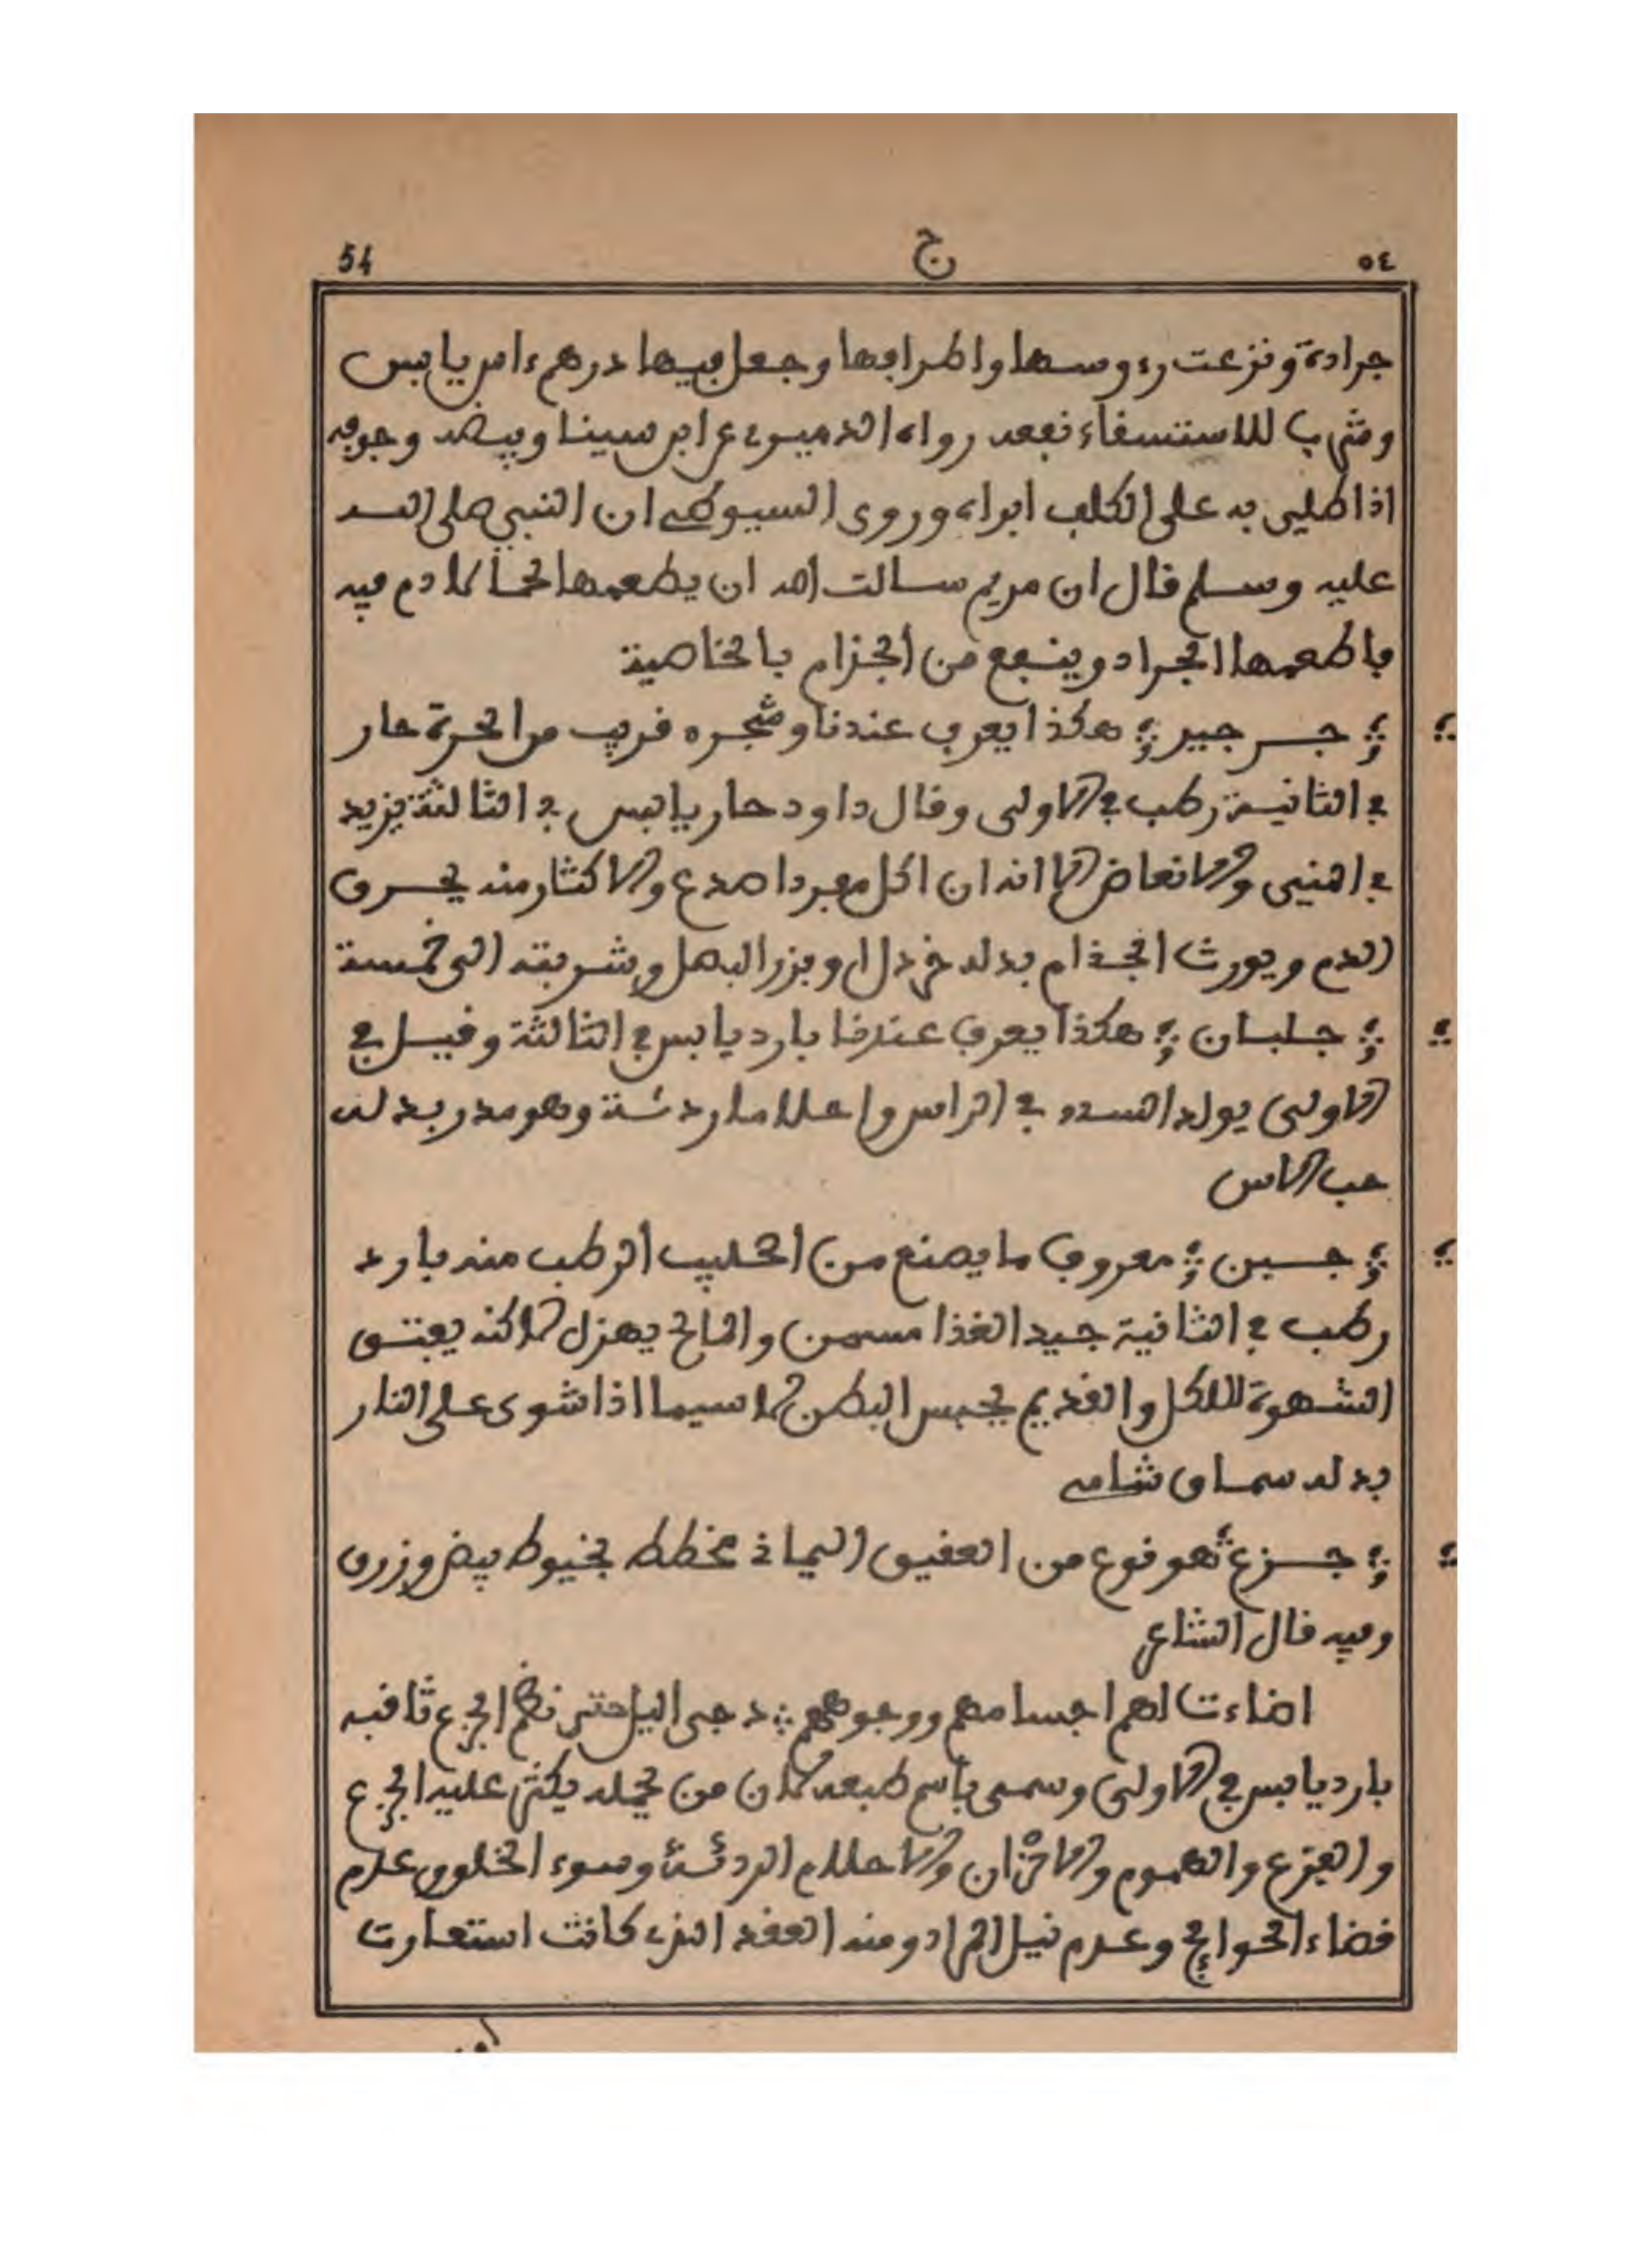 ٥٤ ج 54
جرادة ونزعت رءوسها واطرافها وجعل فيها درهم ءاس يابس
وشرب للاستسفاء نفعه رواه الدميرى عن ابن سينا وبيضه وجوفه
اذا طلي به على الكلف ابراه وروى السيوطى ان النبي صلى الله
عليه وسلم قال ان مريم سالت الله ان يطعمها لحما لا دم فيه
فاطعمها الجراد وينفع من الجزام بالخاصية
جرجير هكذا يعرف عندنا وشجره قريب من الحرة حار
في الثانية رطب في الاولى وقال داود حار يابس في الثالثة يزيد
في المني والانعاض الا انه ان اكل مفردا صدع والاكثار منه يحرق
الدم ويورث الجذام بدله خردل او بزر البصل وشربته الى خمسة
جلبان هكذا يعرف عندنا بارد يابس في الثالثة وقيل في
الاولى يولد السدد في الراس واحلاما ردئة وهو مدر بدله
حب الاس
جبن معروف ما يصنع من الحليب الرطب منه بارد
رطب في الثانية جيد الغذا مسمن والمالح يهزل لاكنه يفتق
الشهوة للاكل والقديم يحبس البطن لا سيما اذا شوى على النار
بدله سماق شامى
جزع هو نوع من العقيق اليماني مخطط بخيوط بيض وزرق
وفيه قال الشاعر
اضاءت لهم اجسامهم ووجوههم دجى اليل حتى نظم الجزع ثاقبه
بارد يابس في الاولى وسمى باسم طبعه لان من يحمله يكثر عليه الجزع
والفزع والهموم والاحزان والاحلام الردئة وسوء الخلق وعدم
قضاء الحوائج وعدم نيل المراد ومنه العقد الذى كانت استعارت